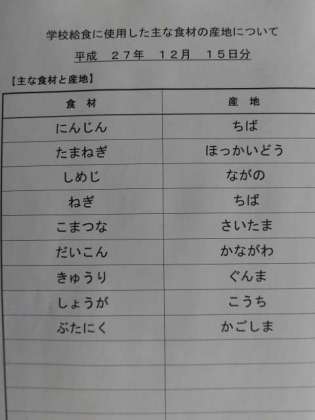 学校給食に使用した主な食材の産地について
平成　２７年　１２月　１５日分
【主な食材と産地】
食　材　産　地
にんじん　ちば
たまねぎ　ほっかいどう
しめじ　ながの
ねぎ　ちば
こまつな　さいたま
だいこん　かながわ
きゅうり　ぐんま
しょうが　こうち
ぶたにく　かごしま